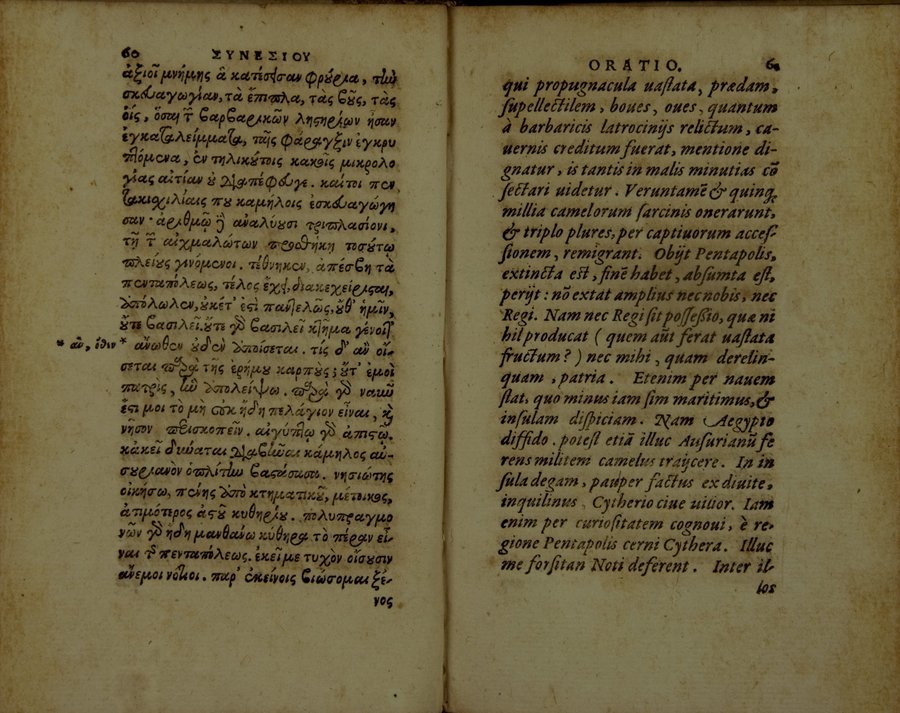 60 ΣΥΝΕΣΙΟΥ
ἀξιοῖ μνήμης ἃ κατέσησαν φρούρια, τὴν
σκευαγωγίαν, τὰ ἔπιπλα, τὰς βοῦς, τὰς
ὄϊς, ὅσαι τῶν βαρβαρικῶν λῃστηρίων ἦσαν
ἐγκαταλείμματα, ταῖς φάραγξιν ἐγκρυ
πλόμενα, ἐν τηλικούτοις κακοῖς μικρολο
γίας αἰτίαν οὐ διαπέφευγε. καίτοι πεν
τακιχιλίαις που καμήλοις ἐσκευαγώγη
σαν· ἀριθμῷ δὲ ἀναλύουσι τριπλασίονι,
τῇ τῶν αἰχμαλώτων προσθήκῃ τοσούτῳ
πλείους γινόμενοι. τέθνηκεν, ἀπέσβη τὰ
πενταπόλεως, τέλος ἔχει, διακεχείρισται,
ἀπόλωλεν, οὐκέτ' ἐστὶ παντελῶς, οὔθ' ἡμῖν,
οὔτε βασιλεῖ. οὔτε γὰρ βασιλεῖ κτῆμα γένοιτ'
* ἂν, ὅθεν * ἄνωθεν οὐδὲν ἀποίσεται. τίς δ' ἂν οἴ-
σεται παρὰ τῆς ἐρήμου καρπούς; οὔτ' ἐμοὶ
πατρὶς, ἣν ἀπολείψω. παρὰ γὰρ ναυῶ
ἐστί μοι τὸ μὴ οὐκ ἤδη πελάγιον εἶναι, καὶ
νῆσον περισκοπεῖν. αἰγύπτῳ γὰρ ἀπιστῶ.
κἀκεῖ δύναται διαβῆναι κάμηλος αὐ-
συριανὸν ὁπλίτην βαστάσασα. νησιώτης
οἰκήσω, πένης ἀπὸ κτηματικοῦ, μέτοικος,
ἀτιμότερος ἀστοῦ κυθηρίου. πολυπραγμο
νῶν γὰρ ἤδη μανθάνω κύθηρα τὸ πέραν εἶ-
ναι τῆς πενταπόλεως. ἐκεῖ με τυχὸν οἴσουσιν
ἄνεμοι νότιοι. παρ' ἐκείνοις βιώσομαι ξέ-
νος
ORATIO. 6
qui propugnacula uastata, prædam,
supellectilem, boues, oues, quantum
à barbaricis latrocinijs relictum, ca-
uernis creditum fuerat, mentione di-
gnatur, is tantis in malis minutias cō
sectari uidetur. Veruntamē & quinq;
millia camelorum sarcinis onerarunt,
& triplo plures, per captiuorum acces-
sionem, remigrant. Obijt Pentapolis,
extincta est, finē habet, absumta est,
perijt: nō extat amplius nec nobis, nec
Regi. Nam nec Regi sit possessio, quæ ni
hil producat (quem aūt ferat uastata
fructum?) nec mihi, quam derelin-
quam, patria. Etenim per nauem
stat, quo minus iam sim maritimus, &
insulam dispiciam. Nam Aegypto
diffido. potest etiā illuc Ausurianū fe
rens militem camelus traijcere. In in
sula degam, pauper factus ex diuite,
inquilinus, Cytherio ciue uilior. Iam
enim per curiositatem cognoui, è re-
gione Pentapolis cerni Cythera. Illuc
me forsitan Noti deferent. Inter il-
los